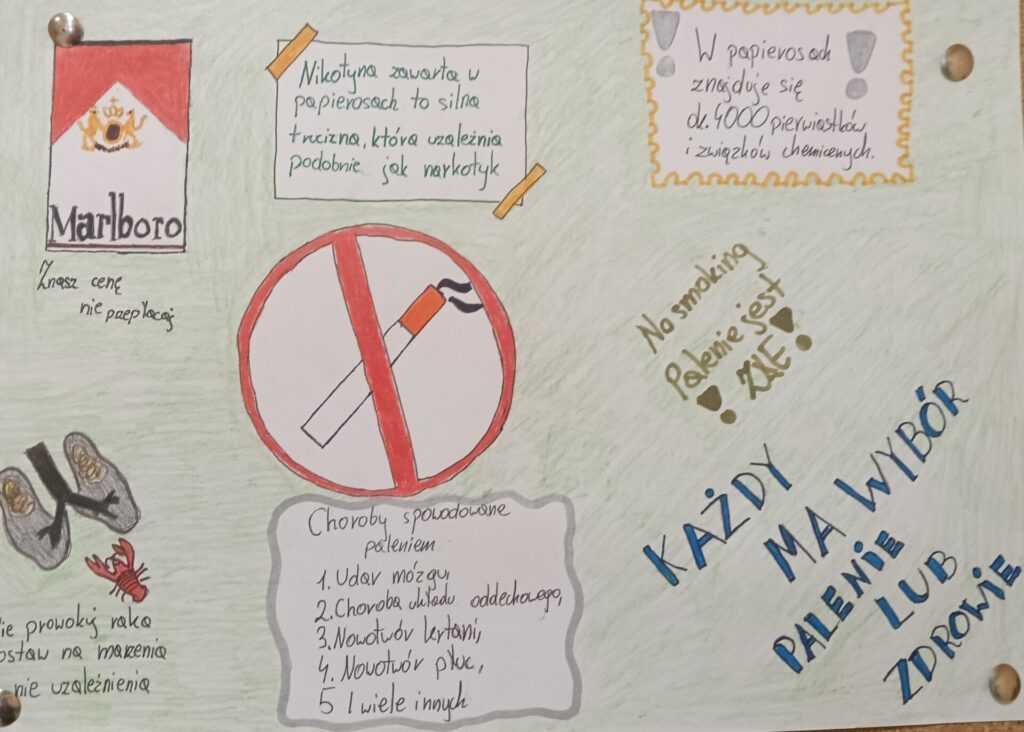 Marlboro
Znasz cenę
nie przepłacaj
Nikotyna zawarta w
papierosach to silna
trucizna, która uzależnia
podobnie jak narkotyk
W papierosach
znajduje się
ok. 4000 pierwiastków
i związków chemicznych.
No smoking
Palenie jest
! ZŁE!
KAŻDY
MA WYBÓR
PALENIE
LUB
ZDROWIE
Choroby spowodowane
paleniem
1. Udar mózgu,
2. Choroba układu oddechowego,
3. Nowotwór krtani,
4. Nowotwór płuc,
5 I wiele innych
ie prowokuj raka
ostaw na marzenia
nie uzależnienia